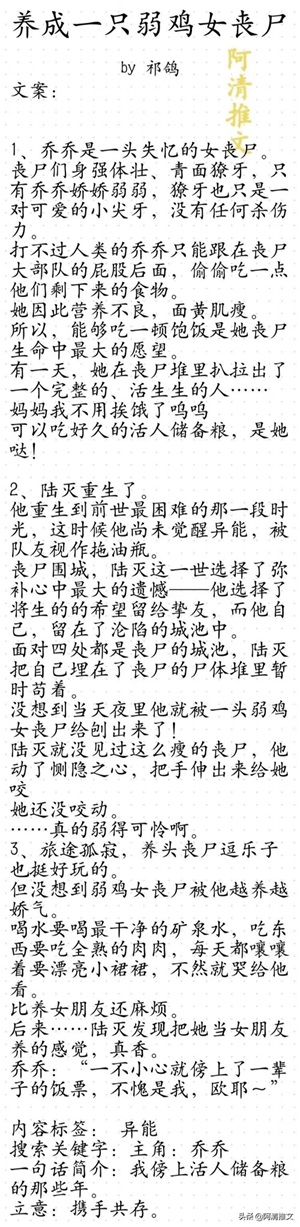 养成一只弱鸡女丧尸
by 祁鸽
阿清推文
文案：
1、乔乔是一头失忆的女丧尸。
丧尸们身强体壮、青面獠牙，只
有乔乔娇娇弱弱，獠牙也只是一
对可爱的小尖牙，没有任何杀伤
力。
打不过人类的乔乔只能跟在丧尸
大部队的屁股后面，偷偷吃一点
他们剩下来的食物。
她因此营养不良，面黄肌瘦。
所以，能够吃一顿饱饭是她丧尸
生命中最大的愿望。
有一天，她在丧尸堆里扒拉出了
一个完整的、活生生的人……
妈妈我不用挨饿了呜呜
可以吃好久的活人储备粮，是她
哒！
2、陆灭重生了。
他重生到前世最困难的那一段时
光，这时候他尚未觉醒异能，被
队友视作拖油瓶。
丧尸围城，陆灭这一世选择了弥
补心中最大的遗憾——他选择了
将生的的希望留给挚友，而他自
己，留在了沦陷的城池中。
面对四处都是丧尸的城池，陆灭
把自己埋在了丧尸的尸体堆里暂
时苟着。
没想到当天夜里他就被一头弱鸡
女丧尸给刨出来了！
陆灭就没见过这么瘦的丧尸，他
动了恻隐之心，把手伸出来给她
咬
她还没咬动。
……真的弱得可怜啊。
3、旅途孤寂，养头丧尸逗乐子
也挺好玩的。
但没想到弱鸡女丧尸被他越养越
娇气。
喝水要喝最干净的矿泉水，吃东
西要吃全熟的肉肉，每天都嚷嚷
着要漂亮小裙裙，不然就哭给他
看。
比养女朋友还麻烦。
后来……陆灭发现把她当女朋友
养的感觉，真香。
乔乔：“一不小心就傍上了一辈
子的饭票，不愧是我，欧耶～”
内容标签： 异能
搜索关键字：主角：乔乔
一句话简介：我傍上活人储备粮
的那些年。
立意：携手共存。
头条@阿清推文